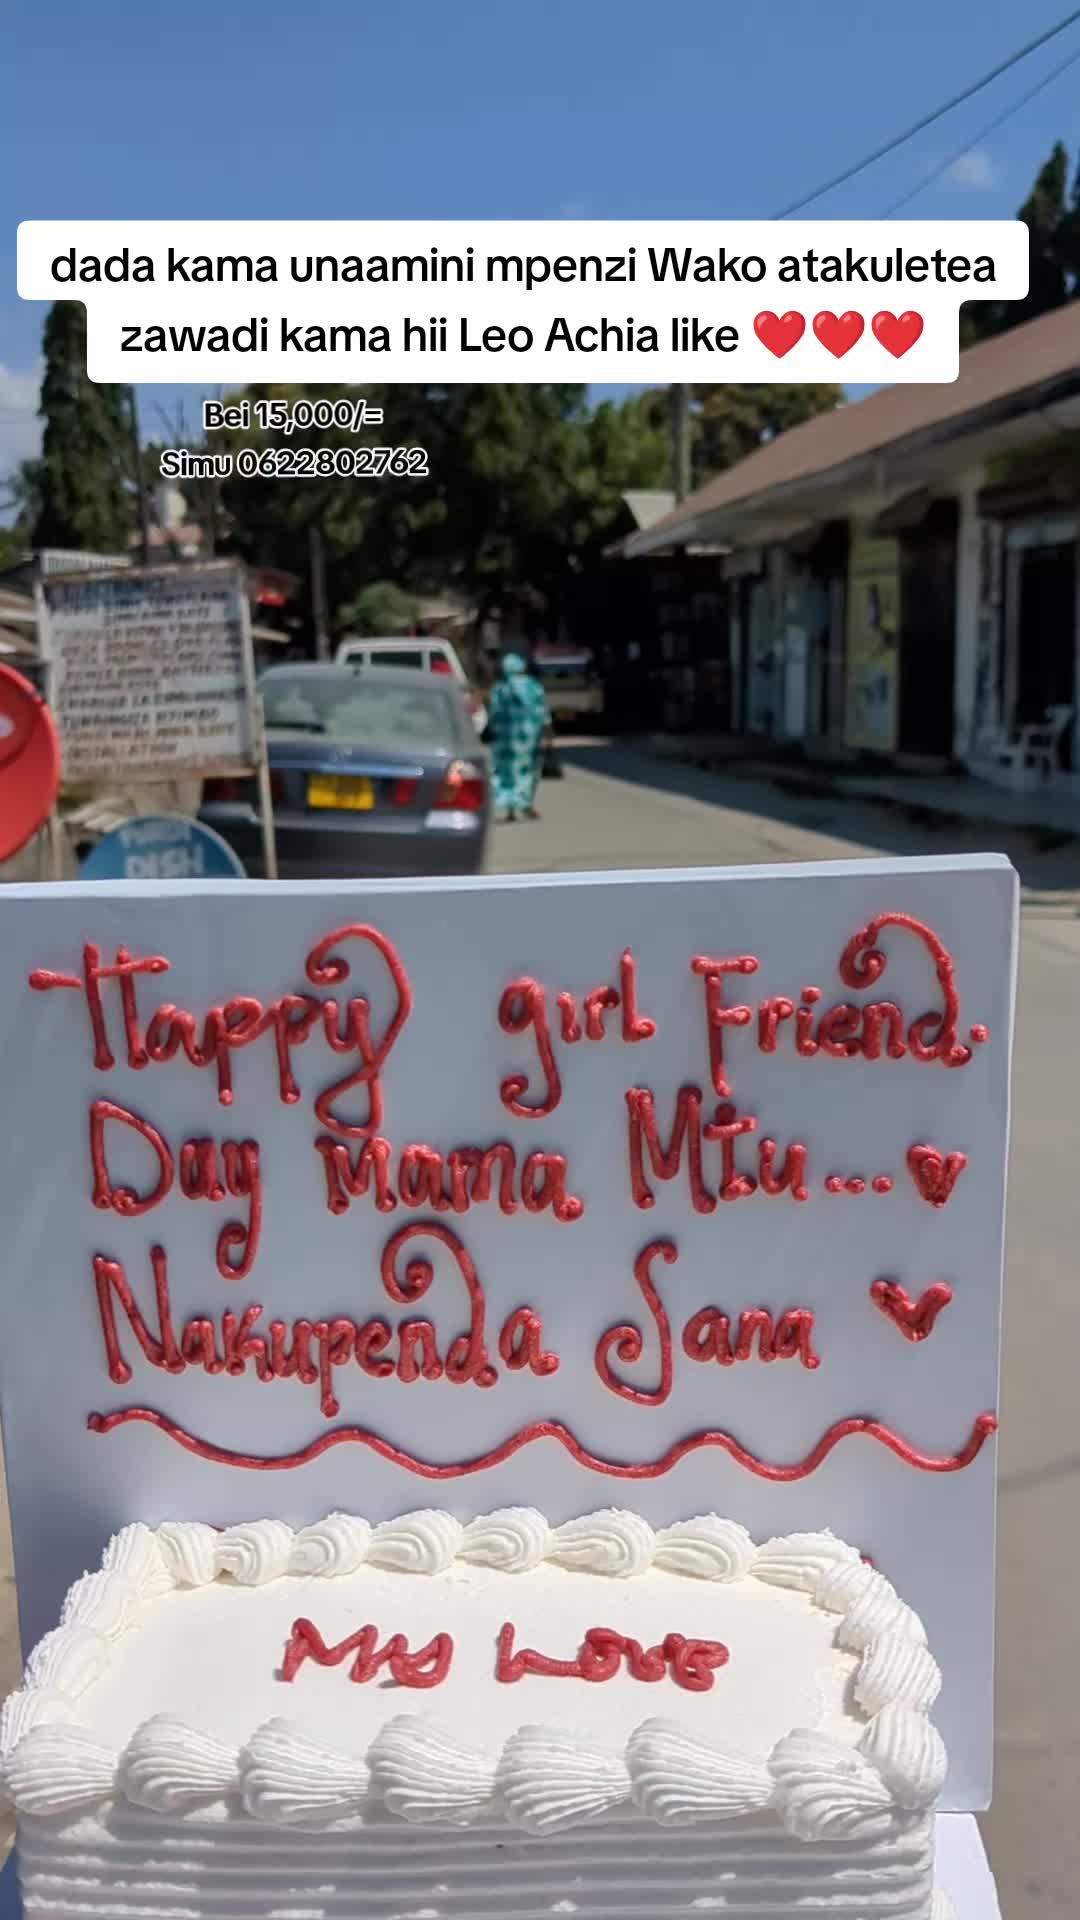 dada kama unaamini mpenzi Wako atakuletea
zawadi kama hii Leo Achia like ❤️❤️❤️
Bei 15,000/=
Simu 0622802762
DISH
Happy girl Friend.
Day mama Mtu...
Nakupenda Sana
My Love